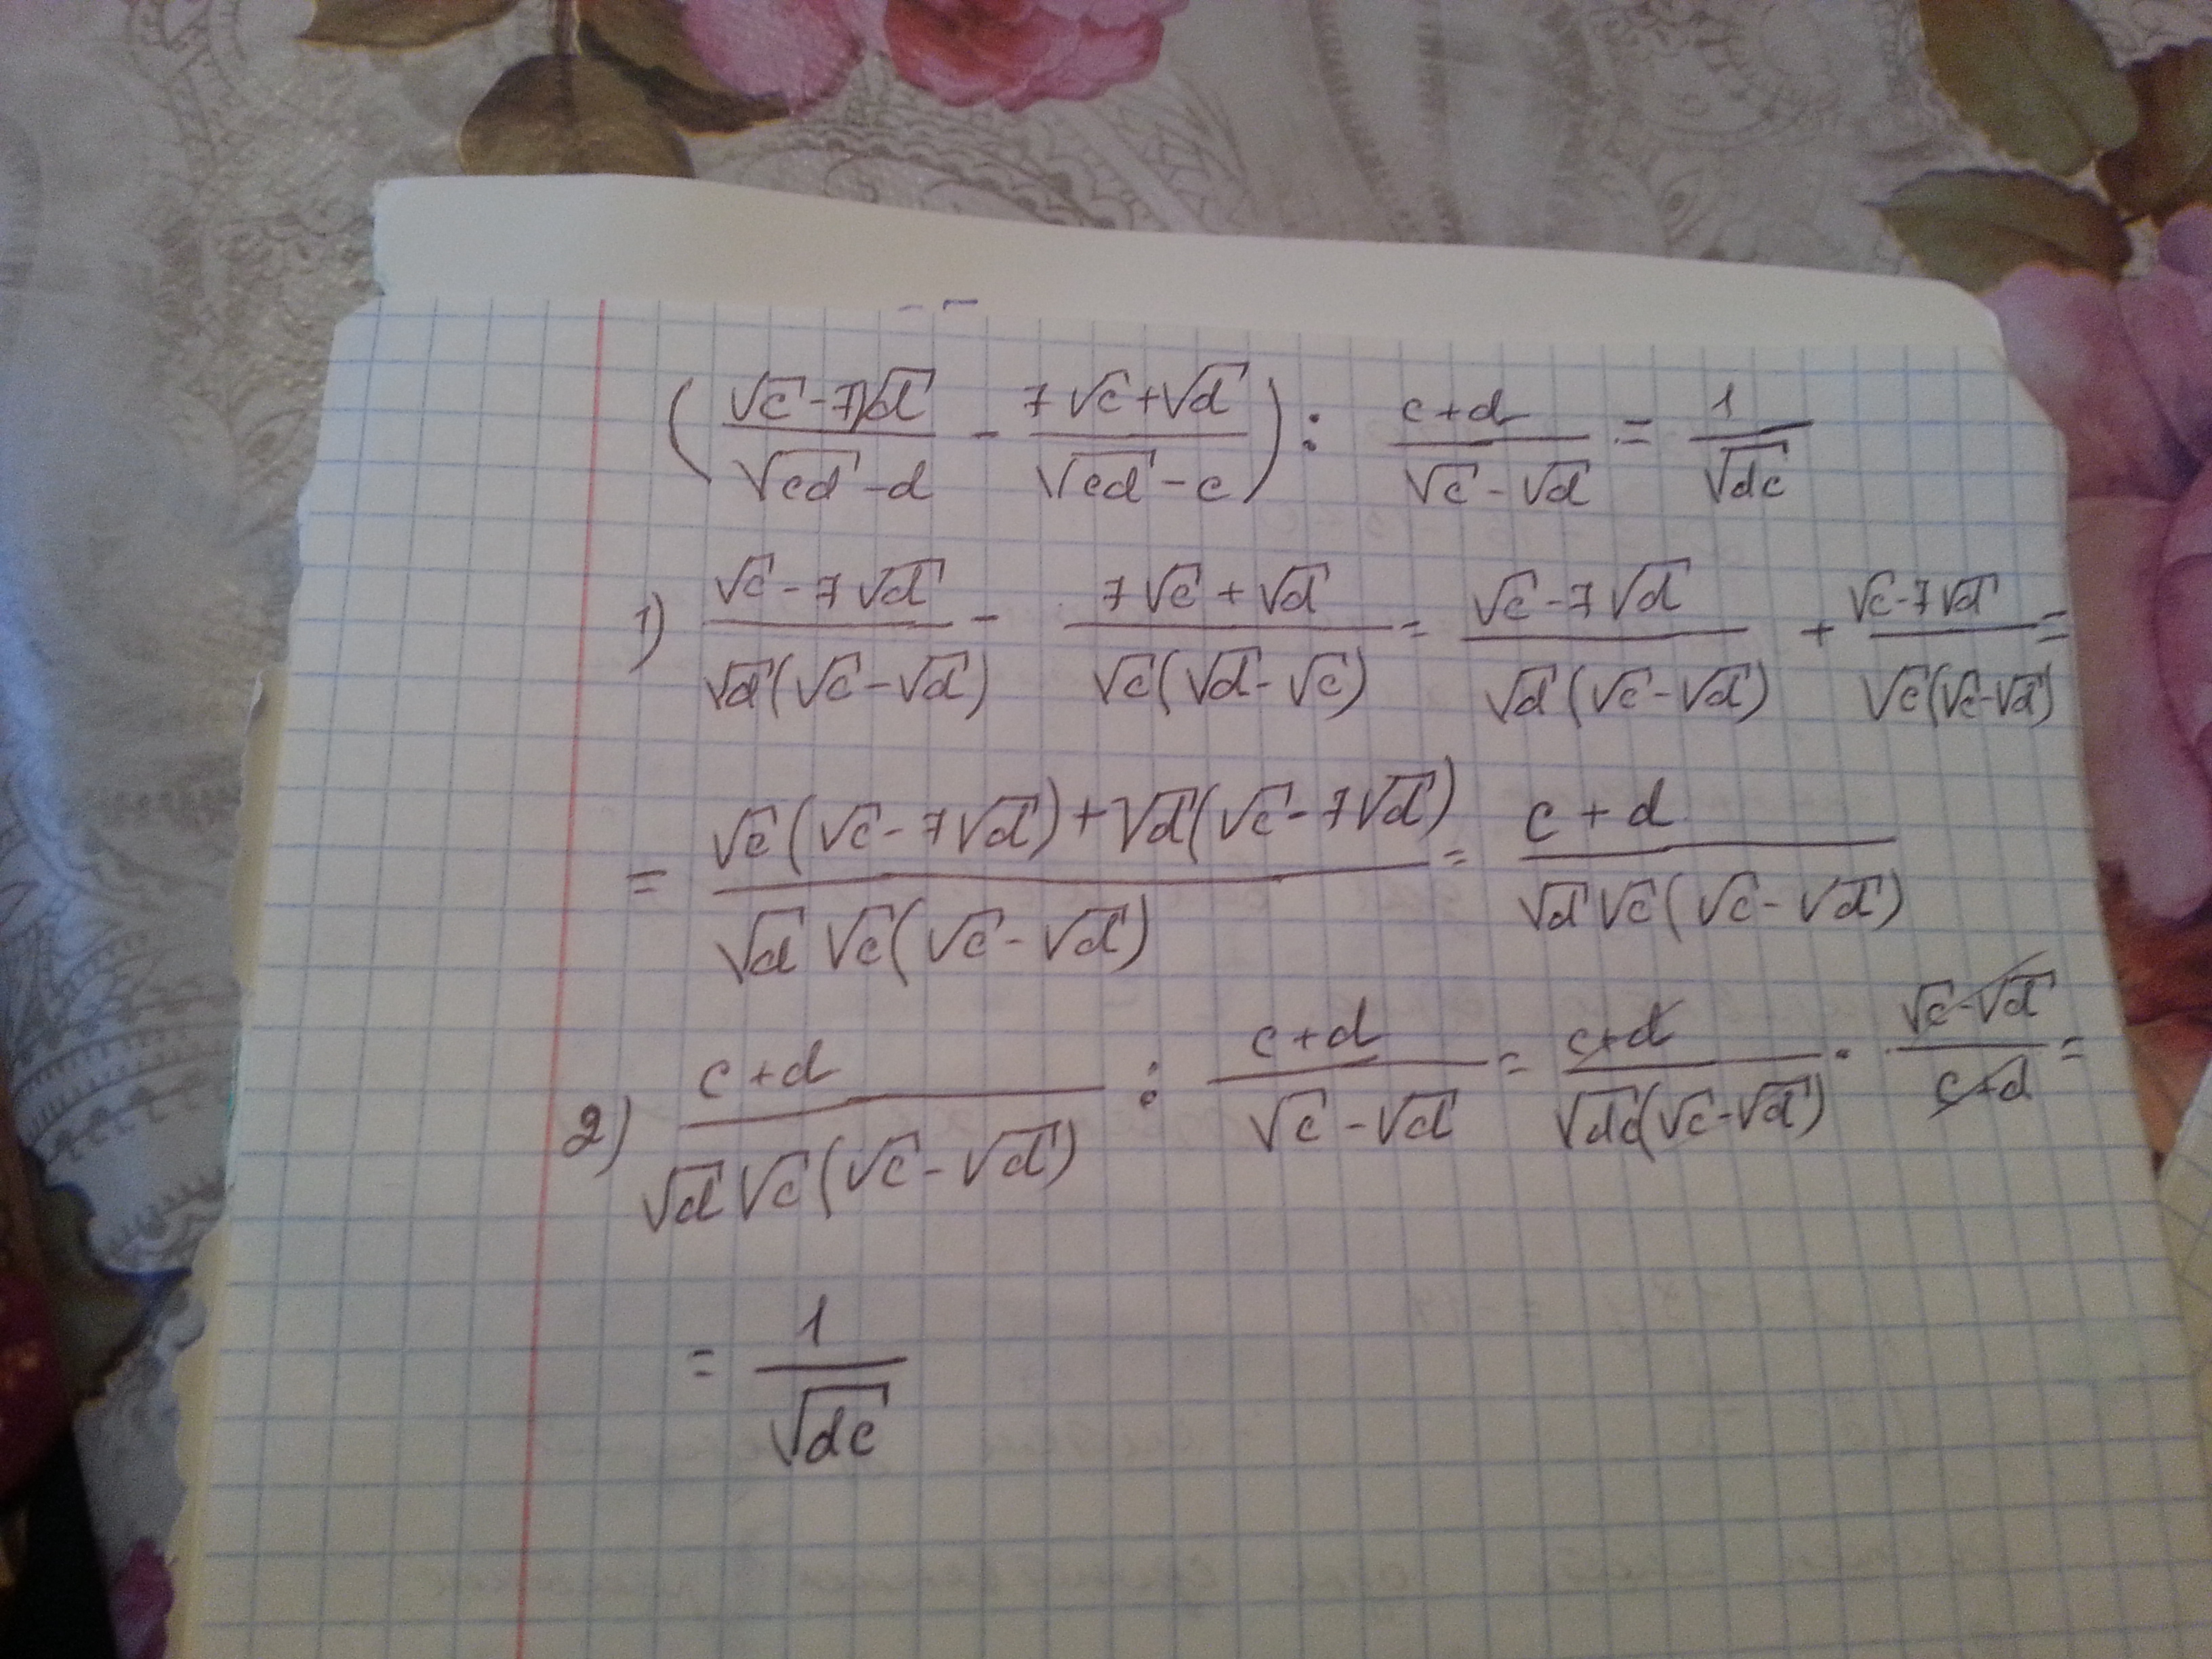 (√c - 7√d / √cd - d - 7√c + √d / √cd - c) : c + d / √c - √d = 1 / √dc
1) √c - 7√d / √d(√c - √d) - 7√c + √d / √c(√d - √c) = √c - 7√d / √d(√c - √d) + √c - 7√d / √c(√c - √d) =
= √c(√c - 7√d) + √d(√c - 7√d) / √d√c(√c - √d) = c + d / √d√c(√c - √d)
2) c + d / √d√c(√c - √d) : c + d / √c - √d = c + d / √dd(√c - √d) · √c - √d / c + d =
= 1 / √dc